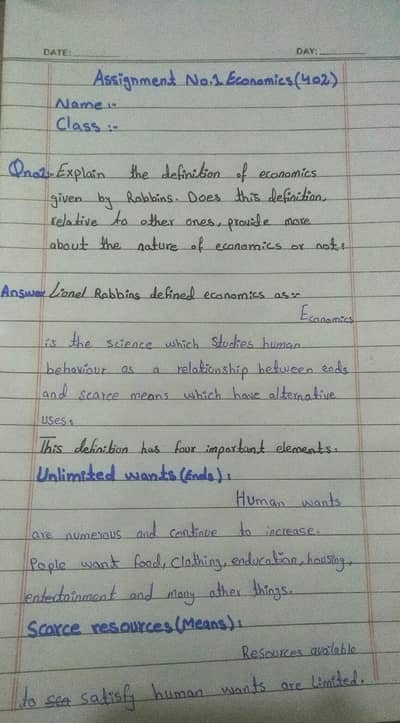 DATE: DAY:
Assignment No.1 Economics(402)
Name :-
Class :-
Qno2:- Explain the definition of economics
given by Robbins. Does this definition,
relative to other ones, provide more
about the nature of economics or not:
Answer Lionel Robbins defined economics as:-
Economics
is the science which studies human
behaviour as a relationship between ends
and scarce means which have alternative
uses.
This definition has four important elements:
Unlimited wants (Ends):
Human wants
are numerous and continue to increase.
Pople want food, Clothing, enducation, housing,
entertainment and many other things.
Scarce resources (Means):
Resources available
to satisfy human wants are limited.